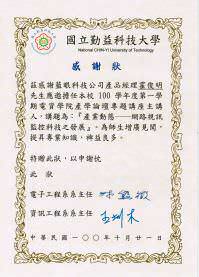 國立勤益科技大學
National CHIN-YI University of Technology
感謝狀
茲感謝藍眼科技公司產品經理翟俊明
先生應邀擔任本校 100 學年度第一學
期電資學院產學論壇專題講座主講
人。講題為：『產業動態──網路視訊
監控科技之發展』，為師生增廣見聞，
提昇專業知識，裨益良多。
特贈此狀，以申謝忱
此 狀
電子工程系系主任
資訊工程系系主任
中華民國一〇〇年十月廿一日